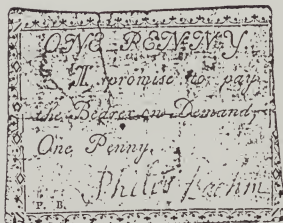 ONE PENNY.
I promise to pay
the Bearer on Demand
One Penny.
P. B.